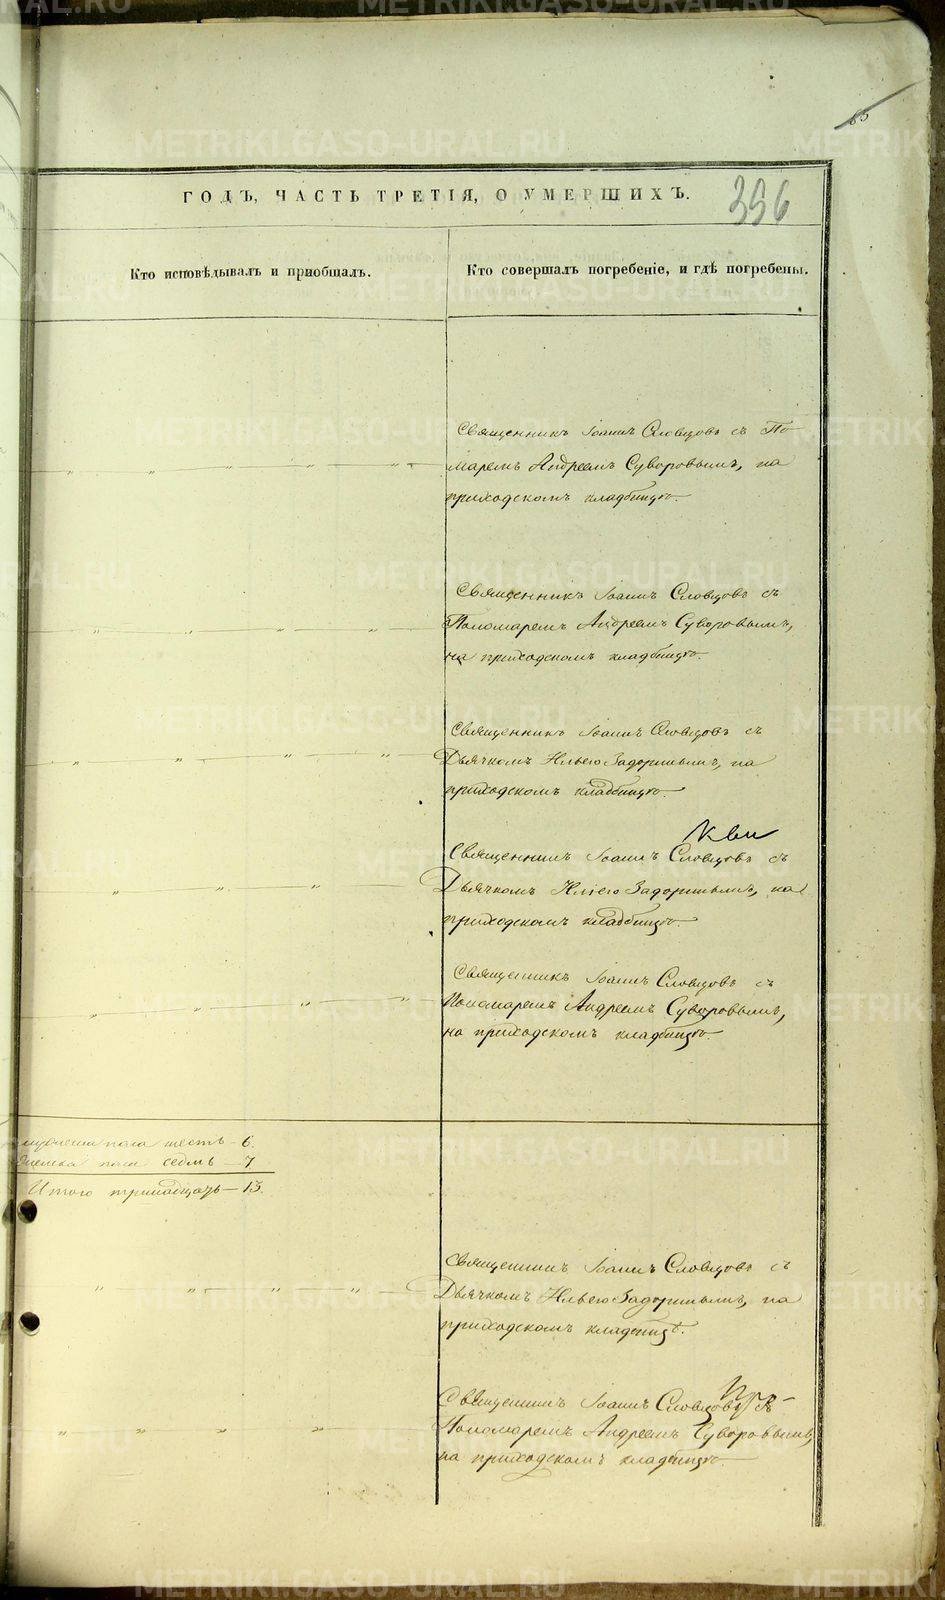 85
ГОДЪ, ЧАСТЬ ТРЕТІЯ, О УМЕРШИХЪ.
356
Кто исповѣдывалъ и пріобщалъ.
Кто совершалъ погребеніе, и гдѣ погребены.
Священникъ Іоаннъ Словцовъ съ По-
маремъ Андреемъ Суворовымъ, на
приходскомъ кладбищѣ.
Священникъ Іоаннъ Словцовъ съ
Пономаремъ Андреемъ Суворовымъ,
на приходскомъ кладбищѣ.
Священникъ Іоаннъ Словцовъ съ
Дьячкомъ Ильею Задоринымъ, на
приходскомъ кладбищѣ.
Священникъ Іоаннъ Словцовъ съ
Дьячкомъ Иліею Задоринымъ, на
приходскомъ кладбищѣ.
Священникъ Іоаннъ Словцовъ съ
Пономаремъ Андреемъ Суворовымъ,
на приходскомъ кладбищѣ.
мужеска пола шесть - 6.
женска пола седмь - 7
Итого тринадцать - 13.
Священникъ Іоаннъ Словцовъ съ
Дьячкомъ Ильею Задоринымъ, на
приходскомъ кладбищѣ.
Священникъ Іоаннъ Словцовъ съ
Пономаремъ Андреемъ Суворовымъ,
на приходскомъ кладбищѣ.
METRIKI.GASO-URAL.RU